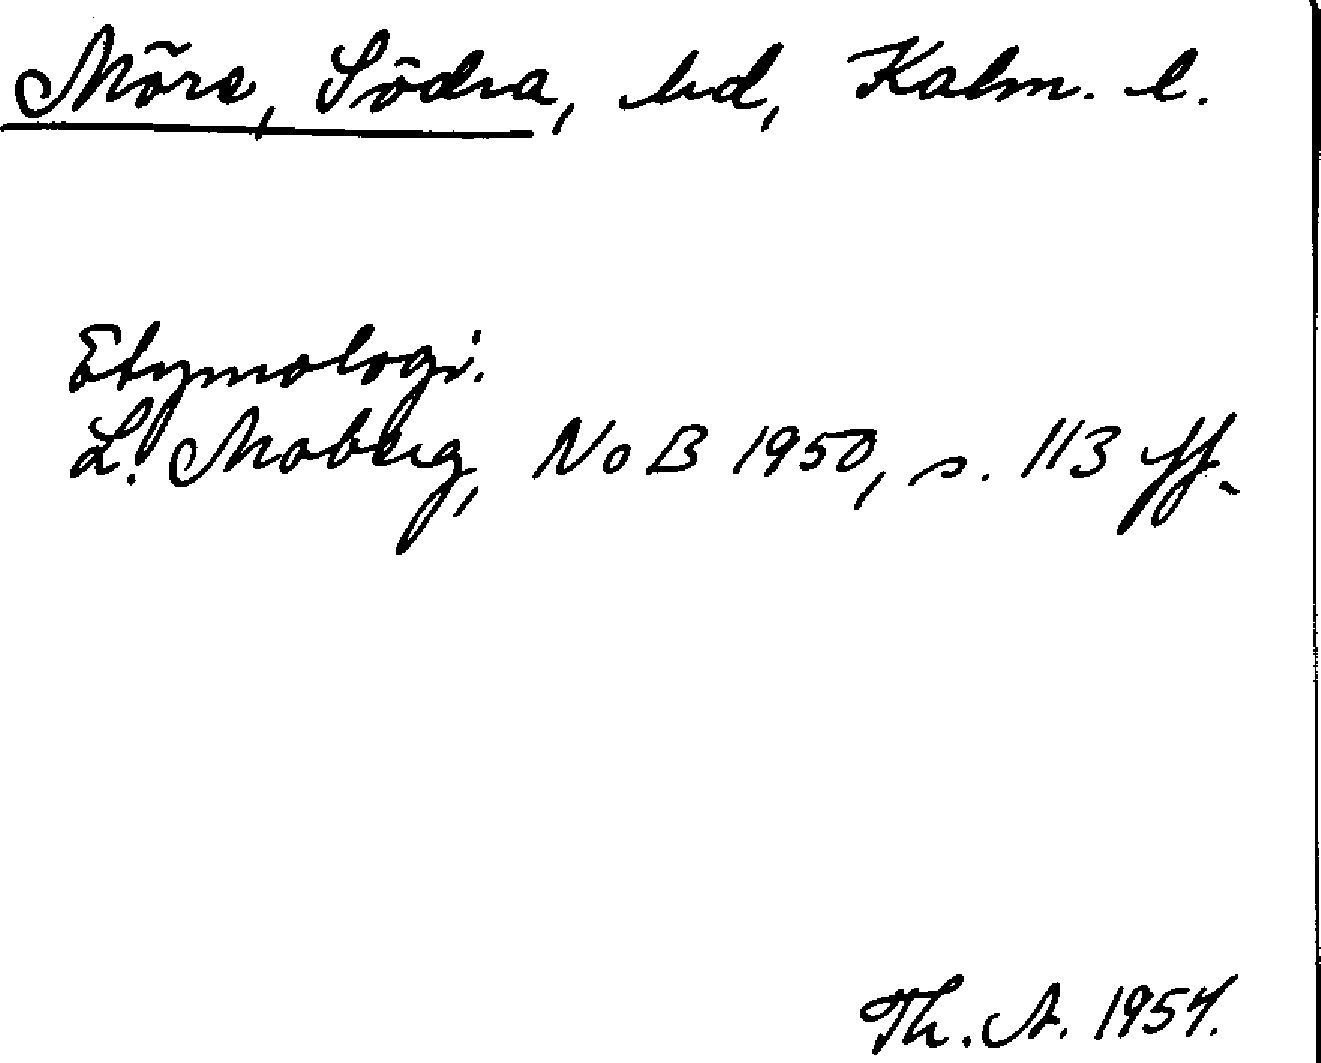 Möre, Södra, hd, Kalm. l.
Etymologi.
L. Moberg, NoB 1950, s. 113 ff.
Th. A. 1954.